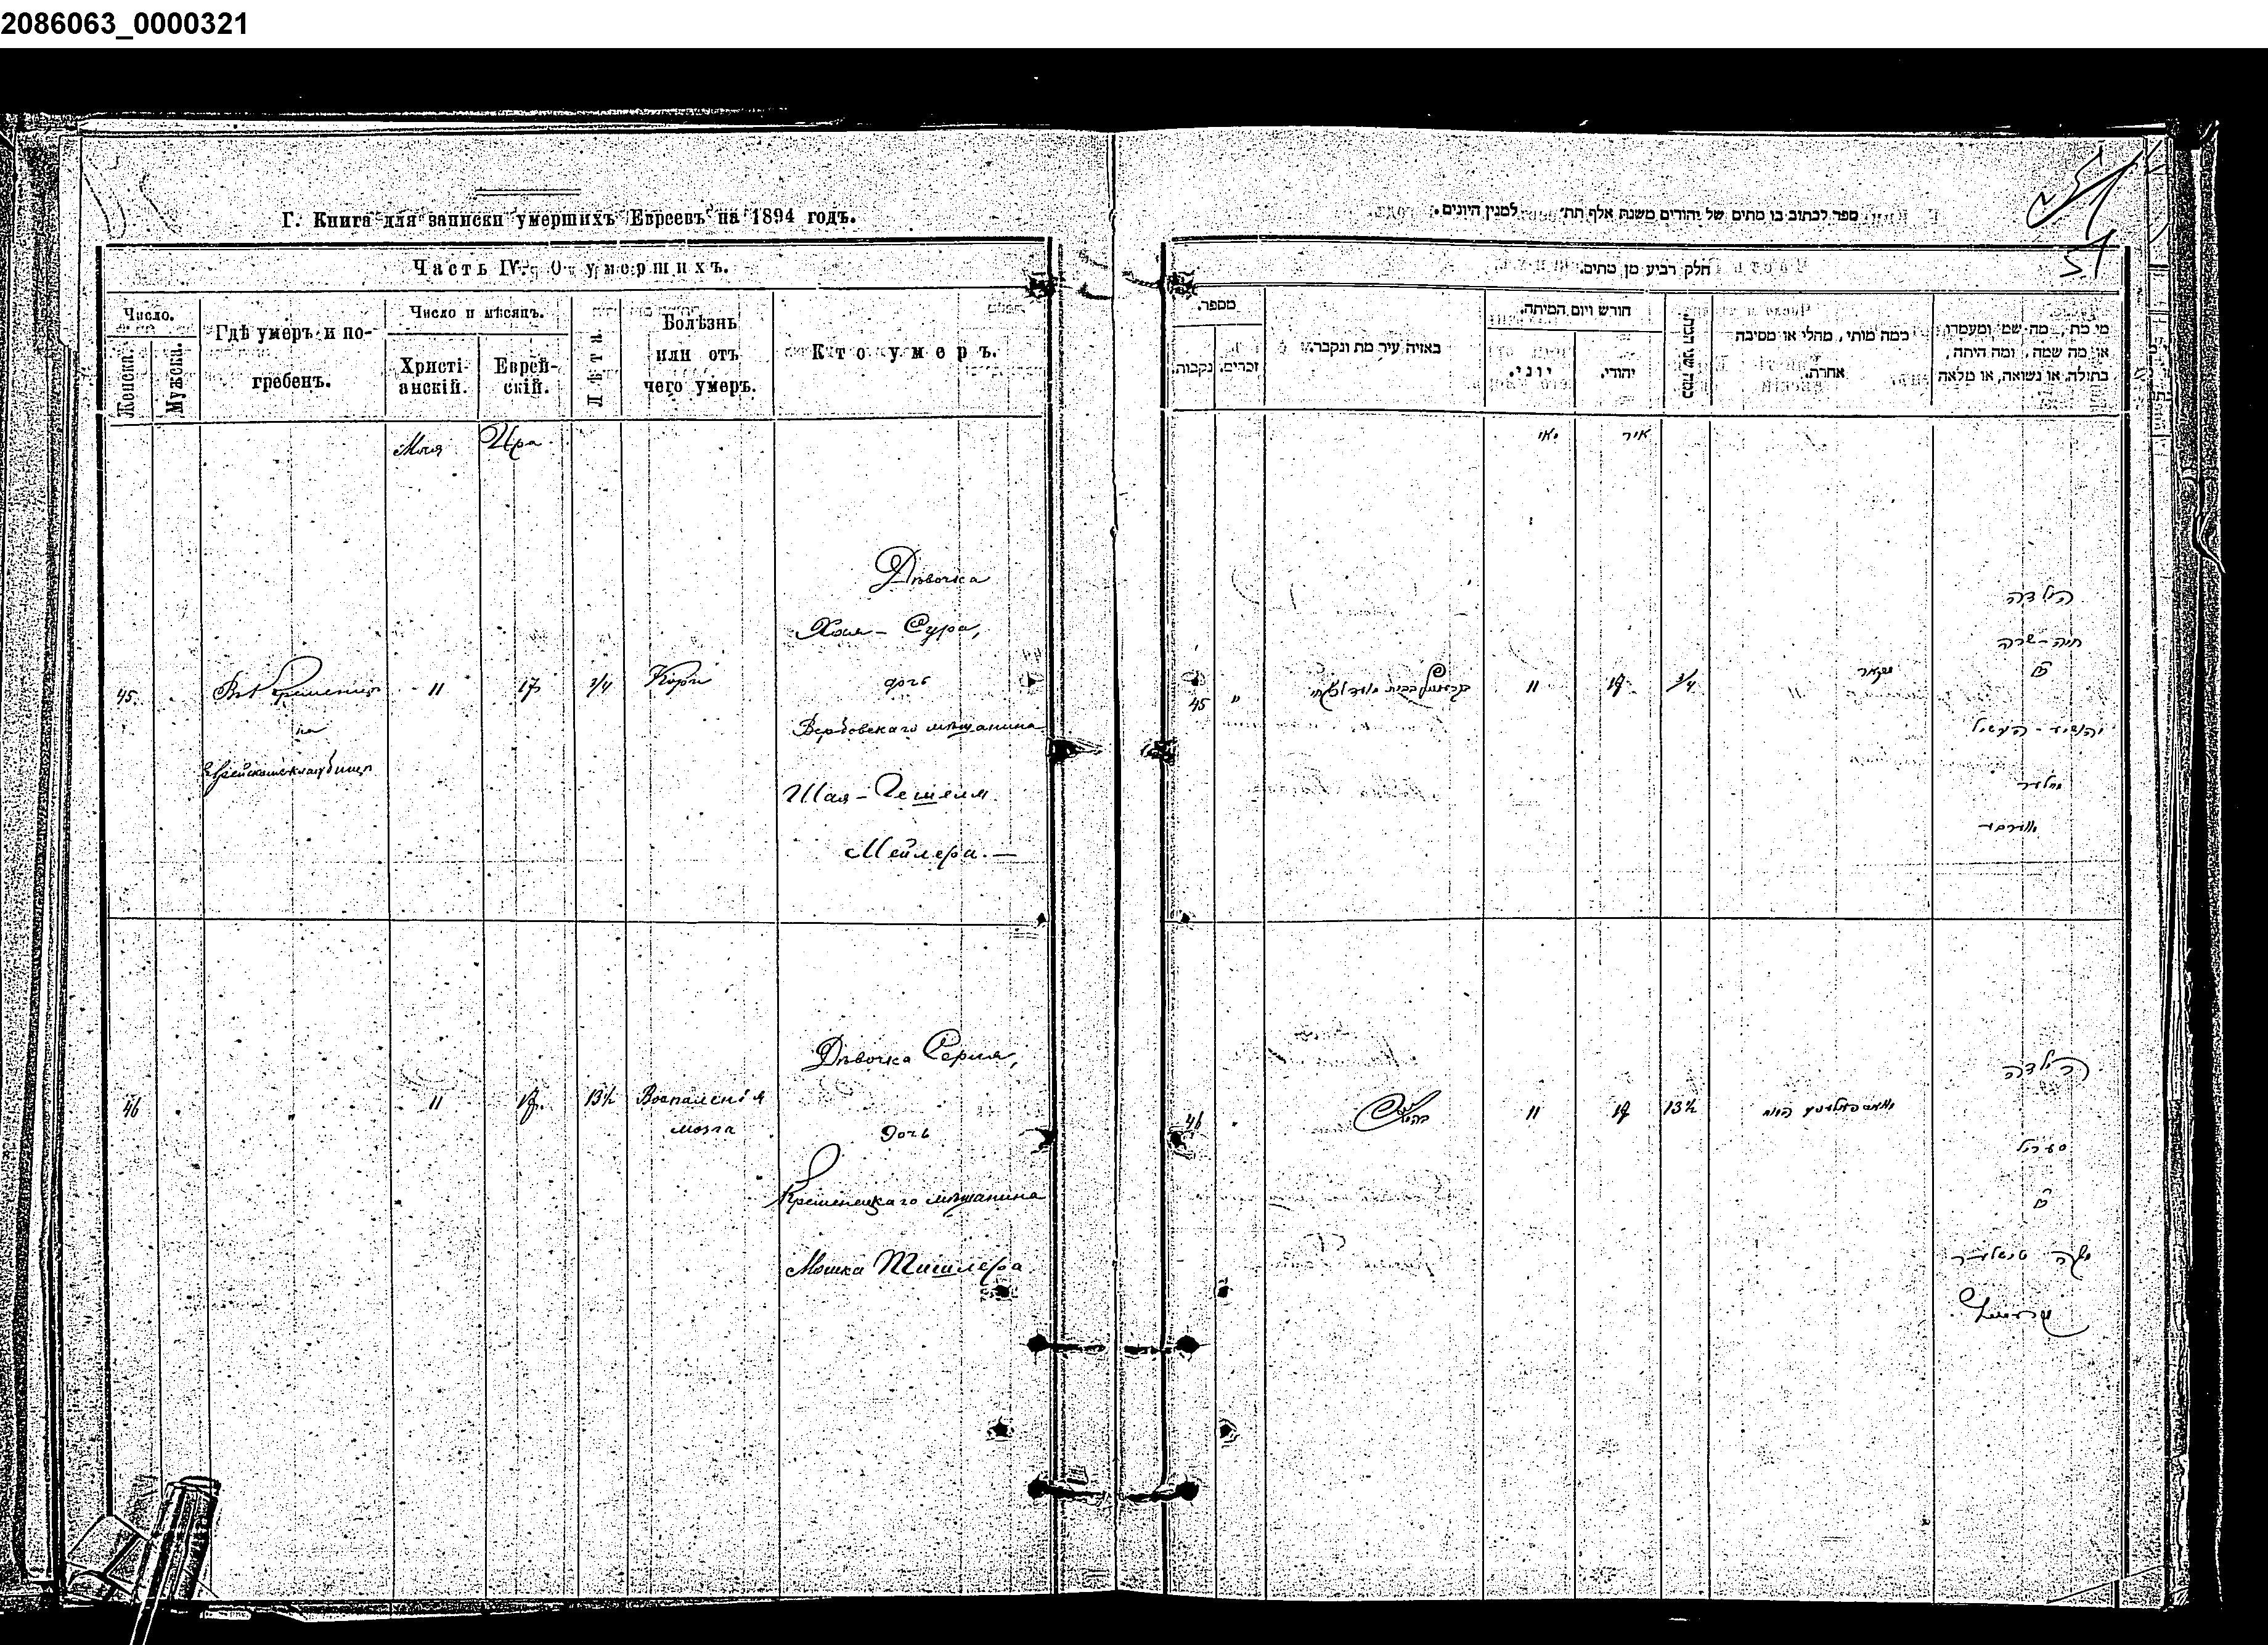 2086063_0000321
Г. Книга для записки умершихъ Евреевъ на 1894 годъ.
Часть IV. О умершихъ.
Число.
Женска.
Мужска.
Гдѣ умеръ и по-
гребенъ.
Число и мѣсяцъ.
Христі-
анскій.
Еврей-
скій.
Лѣта.
Болѣзнь
или отъ
чего умеръ.
Кто умеръ.
Мая
Іира
45
Въ Кременцѣ
на
Еврейскомъ кладбищѣ
11
17
3/4
Кори
Дѣвочка
Хая-Сура,
дочь
Вербовскаго мѣщанина
Шая-Гешеля
Мейлера.—
46
"
11
17
13½
Воспаленія
мозга
Дѣвочка Серия,
дочь
Кременецкаго мѣщанина
Мошка Тишлера.
ספר לכתוב בו מתים של יהודים משנת אלף תת' למנין היונים.
51
חלק רביע מן מתים.
מספר.
נקבות.
זכרים.
באיזה עיר מת ונקבר.
חודש ויום המיתה.
יוני.
יהודי.
כמה שני המת.
כמה מותו, מחלי או מסיבה
אחרת.
מי מת, מה שמו ומעמדו
או מה שמה, ומה היתה,
בתולה, או נשואה, או מלאה
מאי
אייר
45
"
11
17
3/4
הילדה
חיה-שרה
בת
יהושע-העשיל
מלער
46
11
17
13½
הילדה
סעריל
בת
משה טישלער